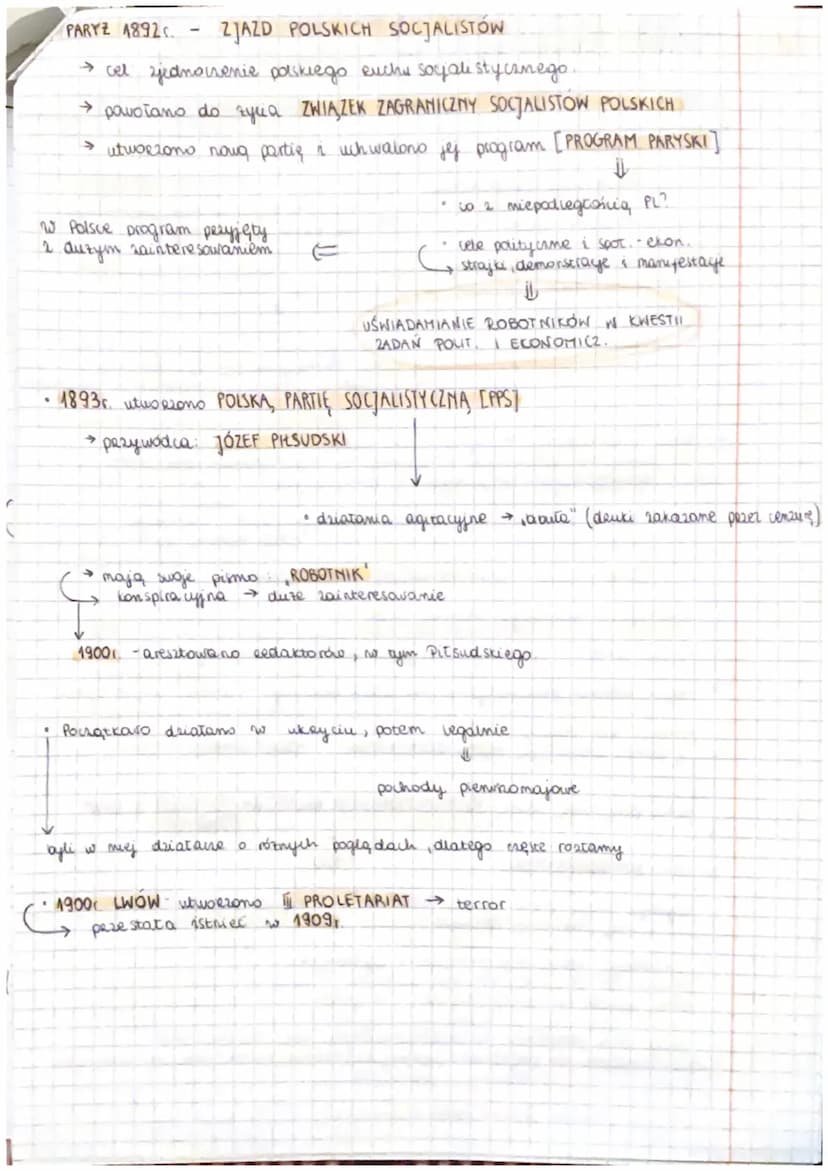 PARYŻ 1892r. - ZJAZD POLSKICH SOCJALISTÓW
→ cel zjednoczenie polskiego ruchu socjalistycznego.
→ powołano do życia ZWIĄZEK ZAGRANICZNY SOCJALISTÓW POLSKICH
→ utworzono nową partię i uchwalono jej program [PROGRAM PARYSKI]
⇓
• co z niepodległością PL?
w Polsce program przyjęty
z dużym zainteresowaniem
⇐
• cele polityczne i społ.-ekon.
→ strajki, demonstracje i manifestacje
⇓
UŚWIADAMIANIE ROBOTNIKÓW W KWESTII
ZADAŃ POLIT. I EKONOMICZ.
• 1893r. utworzono POLSKĄ PARTIĘ SOCJALISTYCZNĄ [PPS]
→ przywódca: JÓZEF PIŁSUDSKI
• działania agitacyjne → „bibuła" (druki zakazane przez cenzurę)
→ mają swoje pismo: „ROBOTNIK"
→ konspiracyjna → duże zainteresowanie
1900r. - aresztowano redaktorów, w tym Piłsudskiego.
• Początkowo działano w ukryciu, potem legalnie
⇓
pochody pierwszomajowe
byli w niej działacze o różnych poglądach, dlatego częste rozłamy
• 1900r. LWÓW - utworzono III PROLETARIAT → terror
→ przestała istnieć w 1909r.